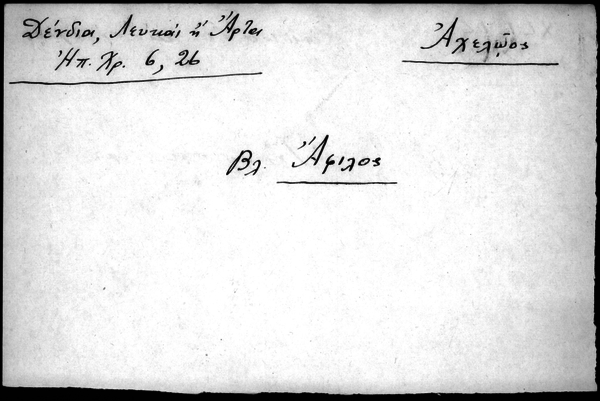 Δένδια, Λευκαί ἤ Ἄρτα
Ἠπ. Χρ. 6, 26
Ἀχελῷος
Βλ. Ἄφιλος